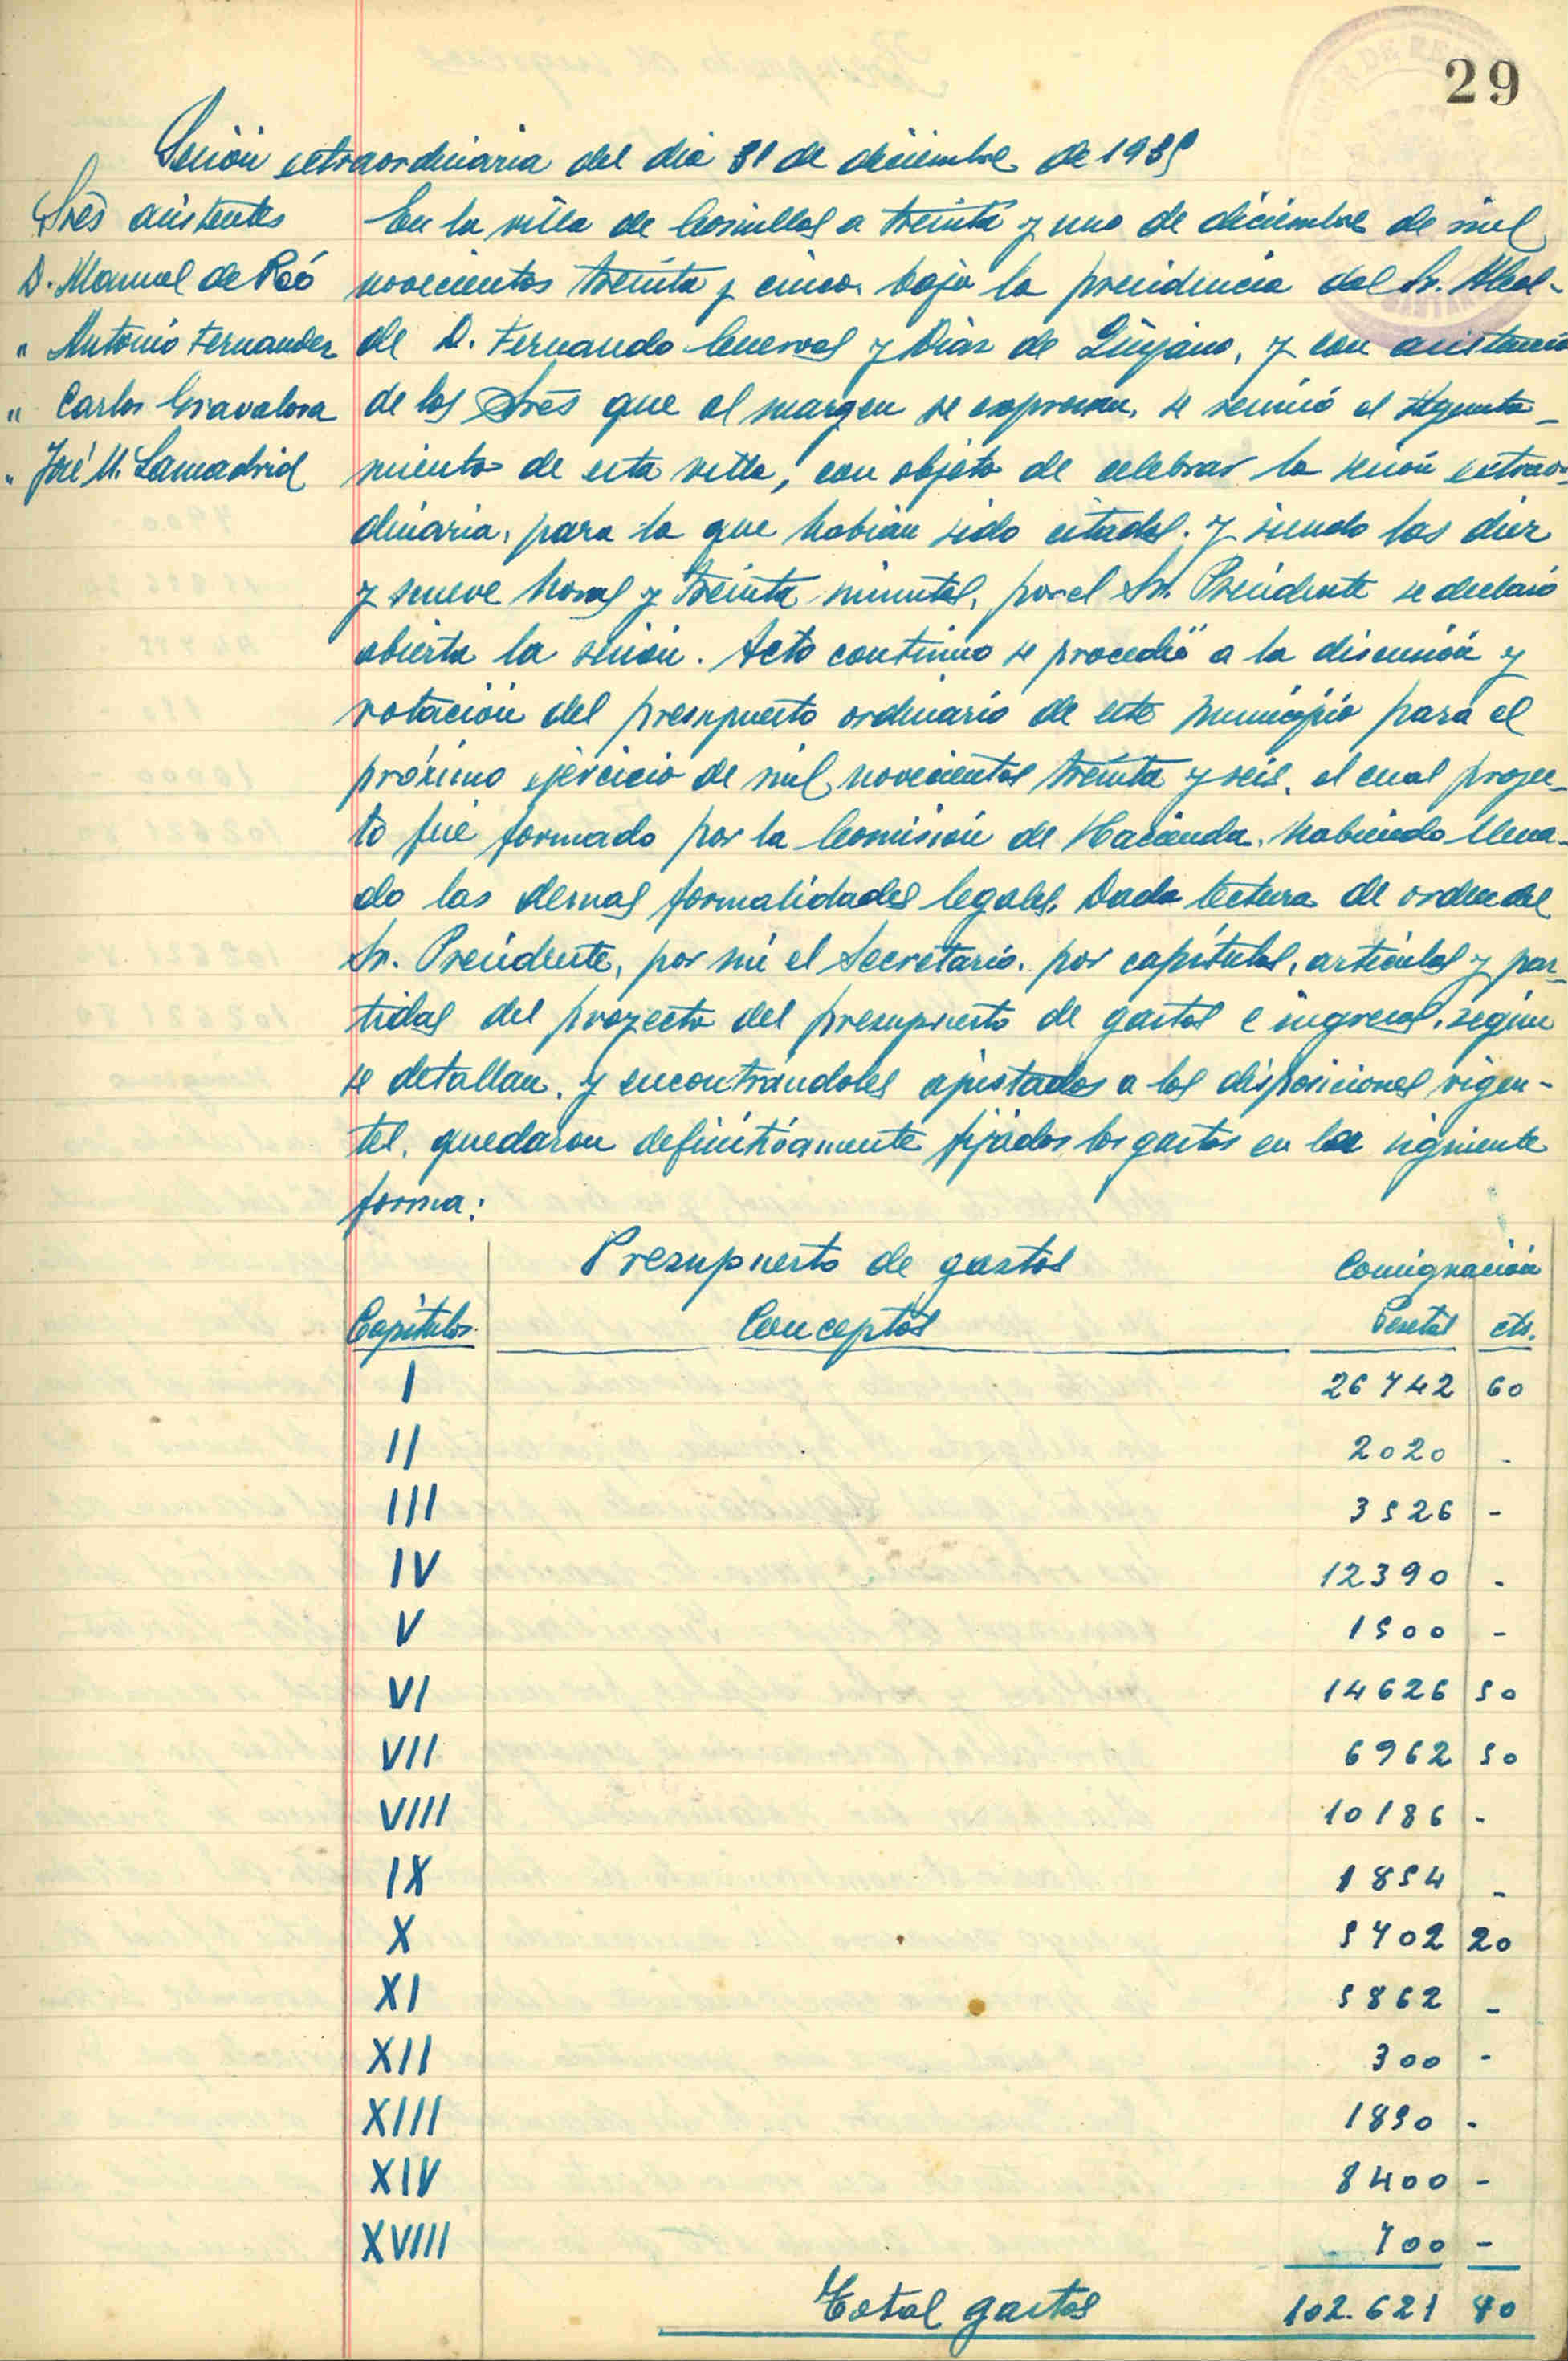 29
Sesión extraordinaria del día 31 de diciembre de 1935
Sres asistentes
D. Manuel de Poó
" Antonio Fernandez
" Carlos Gravalosa
" José M. Lamadrid
En la villa de Comillas a treinta y uno de diciembre de mil
novecientos treinta y cinco, bajo la presidencia del Sr. Alcal-
de D. Fernando Cuevas y Díaz de Quijano, y con asistencia
de los Sres que al margen se expresan, se reunió el Ayunta-
miento de esta villa, con objeto de celebrar la sesión extraor-
dinaria, para la que habían sido citados. y siendo las diez
y nueve horas y treinta minutos, por el Sr. Presidente se declaró
abierta la sesión. Acto continuo se procedió a la discusión y
votación del presupuesto ordinario de este Municipio para el
próximo ejercicio de mil novecientos treinta y seis, el cual proyec-
to fué formado por la Comisión de Hacienda, habiendo llena-
do las demas formalidades legales. Dada lectura de orden del
Sr. Presidente, por mi el Secretario, por capítulos, artículos y par-
tidas del proyecto del presupuesto de gastos e ingresos, según
se detallan, y encontrándoles ajustados a las disposiciones vigen-
tes, quedaron definitivamente fijados los gastos en la siguiente
forma:
Presupuesto de gastos Consignación
Capítulos. Conceptos Pesetas cts.
I 26742 60
II 2020 -
III 3526 -
IV 12390 -
V 1500 -
VI 14626 50
VII 6962 50
VIII 10186 -
IX 1854 -
X 5702 20
XI 5862 -
XII 300 -
XIII 1850 -
XIV 8400 -
XVIII 700 -
Total gastos 102.621 80